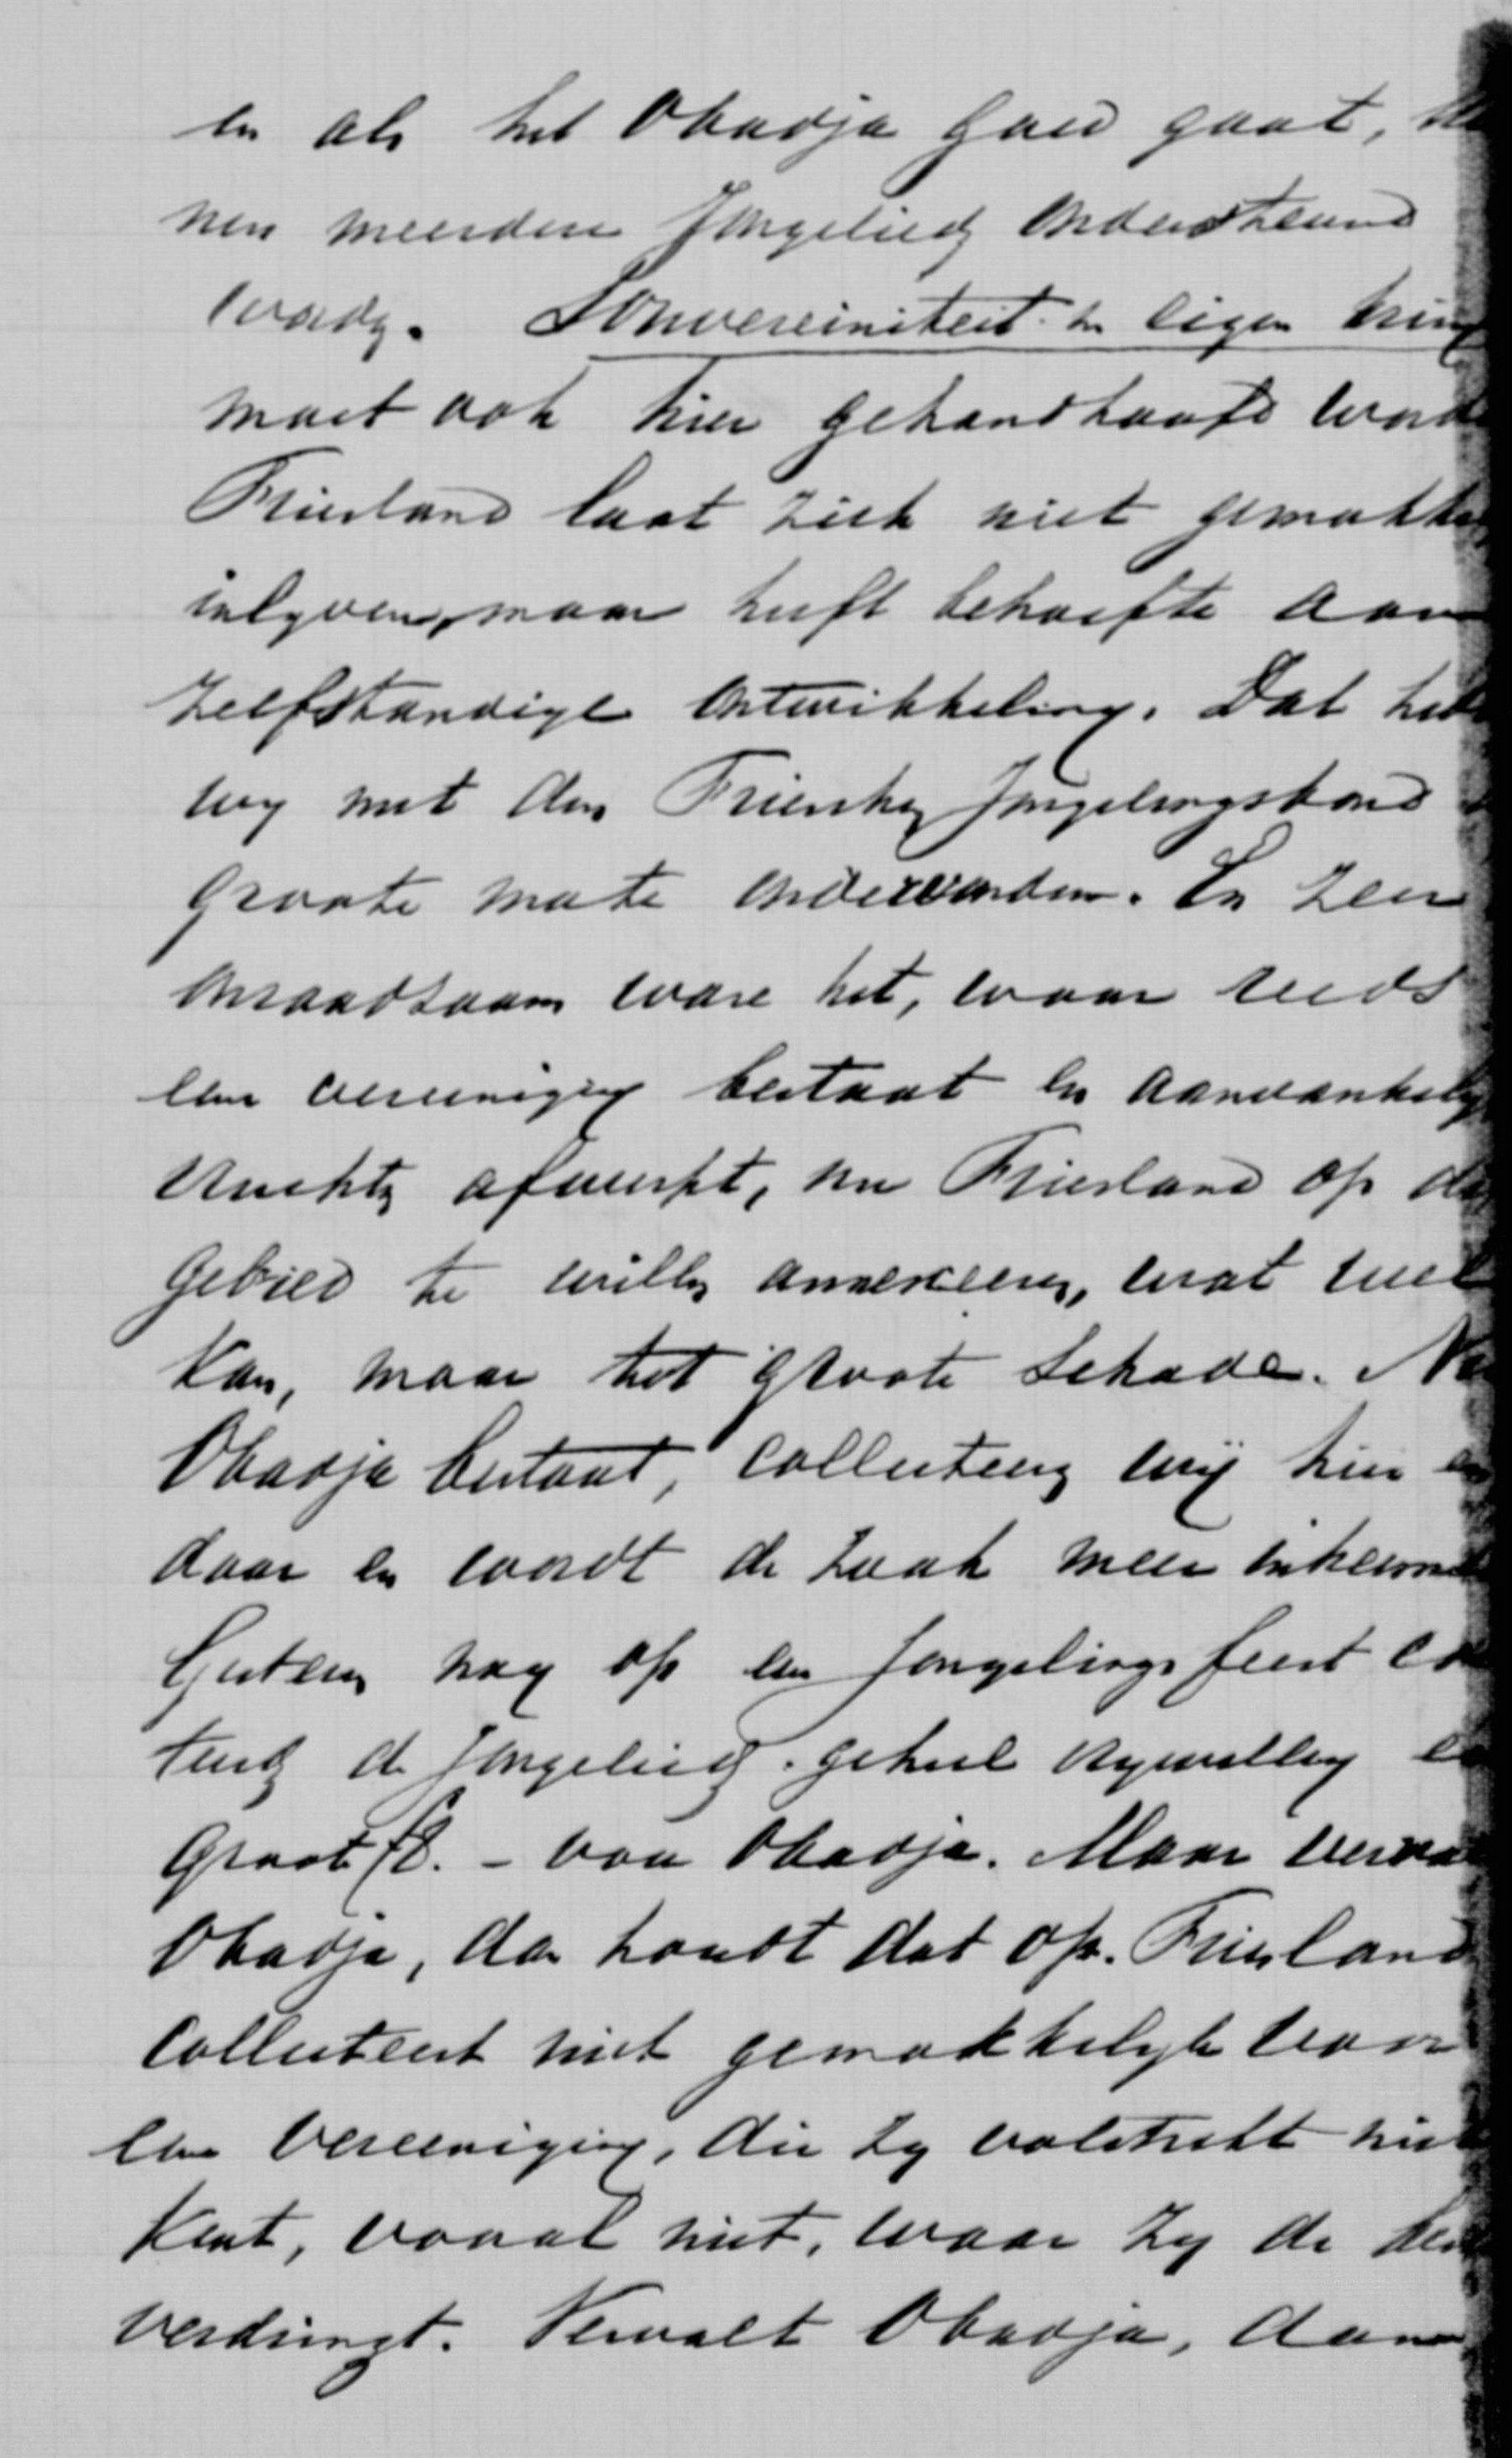 en als het Obadja goed gaat,
nen meerdere Jongelieden ondersteund
worden. Souvereiniteit in eigen kring
moet ook hier gehandhaafd word
Friesland laat zich niet gemakke
inlyven, maar heeft behoefte aan
zelfstandige ontwikkeling. Dat heb
wy met den Frieschen Jongelingsbond
groote mate ondervonden. En zeer
onraadzaam ware het, waar reeds
een vereeniging bestaat en aanvankelyk
vruchten afwerpt, nu Friesland op
gebied te willen annexeeren, wat wel
kan, maar tot groote schade. Nu
Obadja bestaat, collecteeren wij hier en
daar en wordt de zaak meer bekend
Gisteren nog op een Jongelingsfeest co
teerden de Jongelieden geheel vrywillig
groot f 8.- voor Obadja. Maar verva
Obadja, dan houdt dat op. Friesland
collecteert niet gemakkelyk voor
een Vereeniging, die zy volstrekt niet
kent, vooral niet, waar zy de
verdringt. Vervalt Obadja, dan